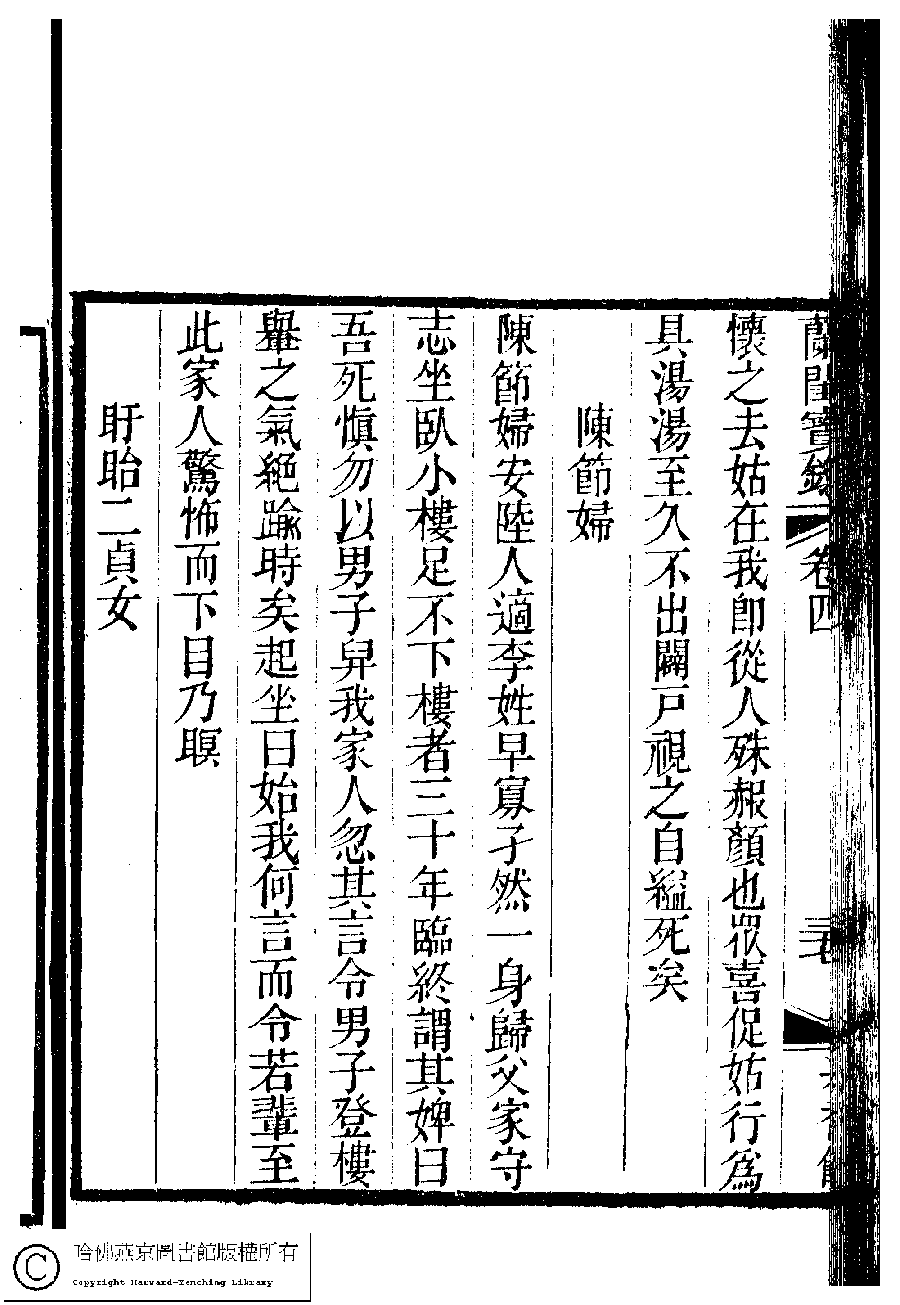 蘭閨寶錄 卷四
懷之去姑在我卽從人殊赧顏也眾喜促姑行爲
具湯湯至久不出闢戸視之自縊死矣
陳節婦
陳節婦安陸人適李姓早寡孑然一身歸父家守
志坐臥小樓足不下樓者三十年臨終謂其婢曰
吾死愼勿以男子舁我家人忽其言令男子登樓
舉之氣絕踰時矣起坐曰始我何言而令若輩至
此家人驚怖而下目乃瞑
盱眙二貞女
哈佛燕京圖書館版權所有
Copyright Harvard-Yenching Library